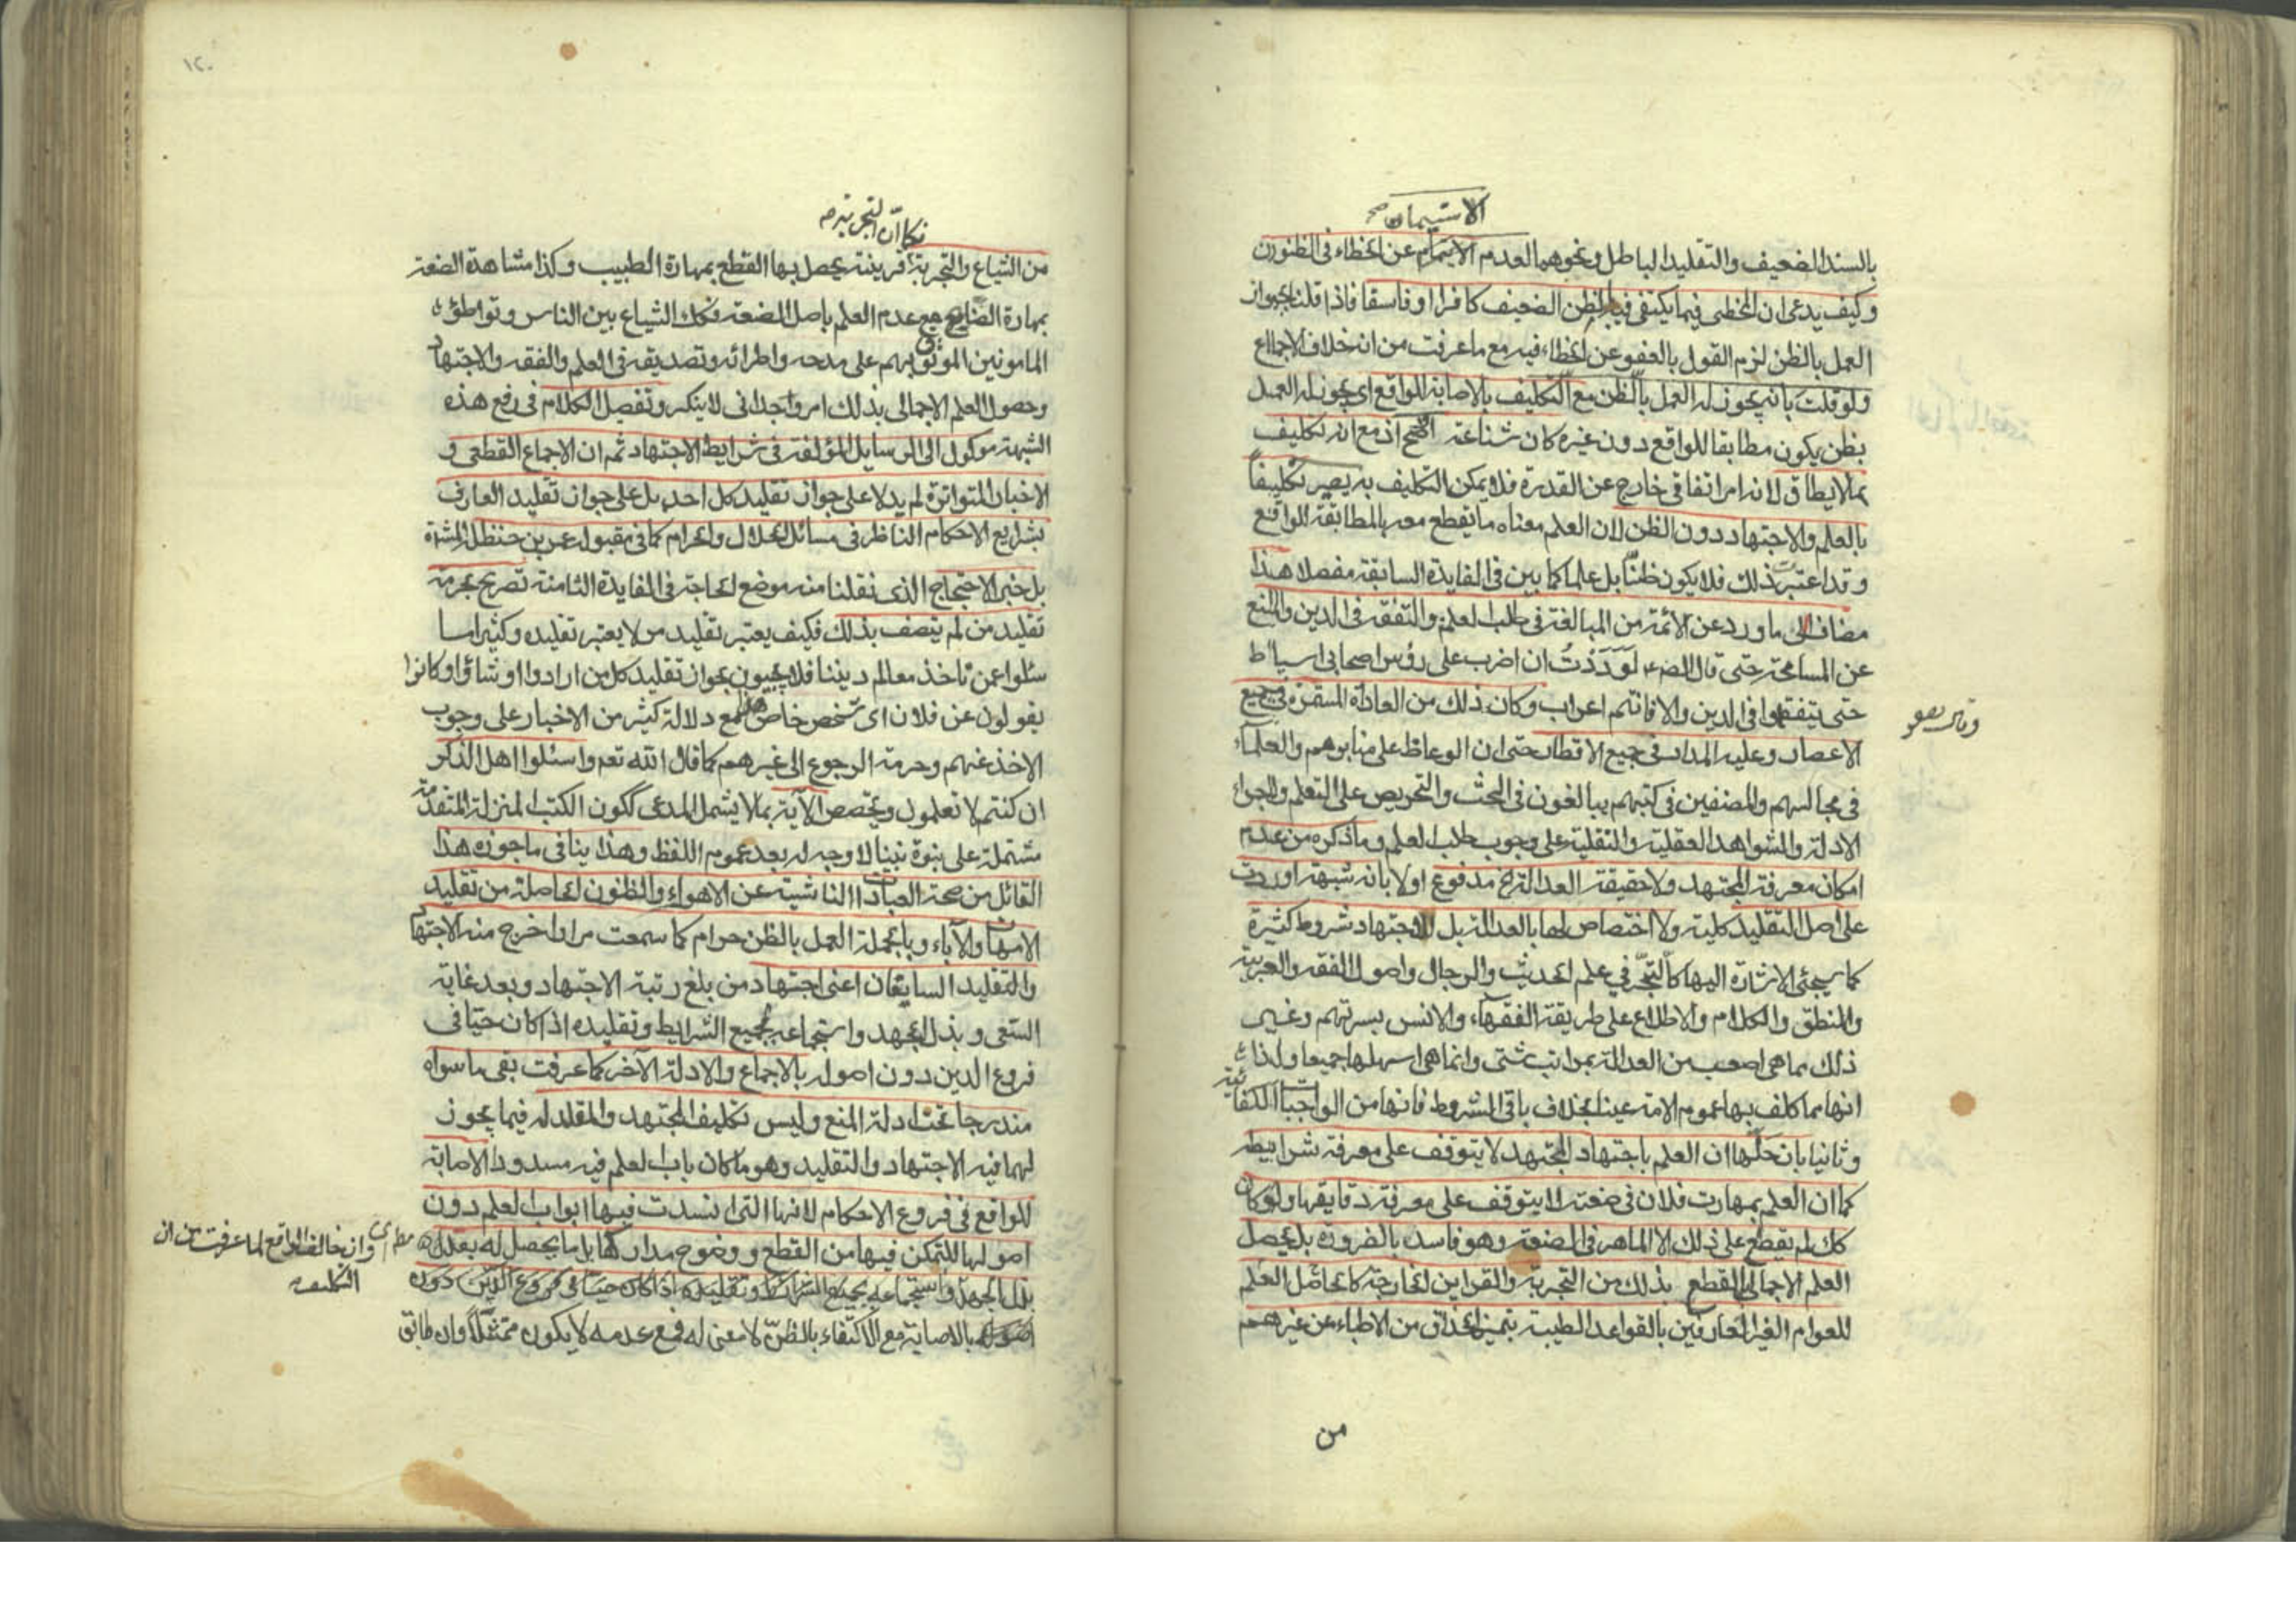 الاستيمان صح
بالسند الضعيف والتقليد الباطل ونحوهما لعدم الايتمام عن الخطاء فى الظنون
وكيف يدعى ان المخطى فيما يكتفى فيه بالظن الضعيف كافرا او فاسقا فاذا قلنا بجواز
العمل بالظن لزم القول بالعفو عن الخطاء فيه مع ما عرفت من انه خلاف الاجماع
ولو قلت بانه يجوز له العمل بالظن مع التكليف بالاصابة للواقع اى يجوز له العمل
بظن يكون مطابقا للواقع دون غيره كان شناعته اقبح اذ مع انه تكليف
بما لا يطاق لانه امر اتفاقى خارج عن القدرة فلا يمكن التكليف به يصير تكليفاً
بالعلم والاجتهاد دون الظن لان العلم معناه ما يقطع معه بالمطابقة للواقع
وقد اعتبرت ذلك فلا يكون ظنّا بل علما كما بين فى الفايدة السابقة مفصلا هذا
مضافا الى ما ورد عن الأئمة من المبالغة فى طلب العلم والتفقه فى الدين والمنع
عن المسامحة حتى قال الص ع لَوَدَدْتُ ان اضرب على رؤس اصحابى اسياط
حتى يتفقهوا فى الدين والا فانتم اعراب وكان ذلك من العادة المستمرة فى جميع
الاعصار وعليه المدار فى جميع الاقطار حتى ان الوعاظ على منابرهم والعلماء
فى مجالسهم والمصنفين فى كتبهم يبالغون فى الحث والتحريص على التعلم واجراء
الادلة والشواهد العقلية والنقلية على وجوب طلب العلم وما ذكره من عدم
امكان معرفة المجتهد ولا حقيقة العدالة الخ مدفوع اولا بانه شبهة اوردت
على اصل التقليد كلية ولا اختصاص لها بالعدالة بل للاجتهاد شروط كثيرة
كما سيجئى الاشارة اليها كالتبحّر فى علم الحديث والرجال واصول الفقه والعربية
والمنطق والكلام والاطلاع على طريقة الفقهاء والانس بسيرتهم وغير
ذلك مما هى اصعب من العدالة بمراتب شتى وانما هى اسهلها جميعا ولذا
انها مما كلف بها عموم الامة عينا بخلاف باقى الشروط فانها من الواجبات الكفائية
وثانيا بان حَلّها ان العلم باجتهاد المجتهد لا يتوقف على معرفة شرايطه
كما ان العلم بمهارت فلان فى صنعته لا يتوقف على معرفة دقايقها ولو كان
كك لم يقطع على ذلك الا الماهر فى الصنعة وهو فاسد بالضرورة بل يحصل
العلم الاجمالى القطع بذلك من التجربة والقراين الخارجة كما حاصل العلم
للعوام الغير العارفين بالقواعد الطبية بتميز الحذاق من الاطباء عن غيرهم
من
١٢٠
فكما ان التجربة
من الشياع والتجربة قرينة يحصل بها القطع بمهارة الطبيب وكذا مشاهدة الصنعة
بمهارة الصانع مع عدم العلم باصل الصنعة فكك الشياع بين الناس وتواطؤ
المامونين الموثوق بهم على مدحه واطرائه وتصديقه فى العلم والفقه والاجتهاد
وحصول العلم الاجمالى بذلك امر وجدانى لا ينكر وتفصيل الكلام فى رفع هذه
الشبهة موكول الى الرسايل المؤلفة فى شرايط الاجتهاد ثم ان الاجماع القطعى و
الاخبار المتواترة لم يدلا على جواز تقليد كل احد بل على جواز تقليد العارف
بشرايع الاحكام الناظر فى مسائل الحلال والحرام كما فى مقبولة عمر بن حنظلة
بل خبر الاحتجاج الذى نقلنا منه موضع الحاجة فى الفايدة الثامنة تصريح بحرمة
تقليد من لم يتصف بذلك فكيف يعتبر تقليد من لا يعتبر تقليده وكثيرا ما
سئلوا عمن ناخذ معالم ديننا فلا يجيبون بجواز تقليد كل من ارادوا او شاؤا وكانوا
يقولون عن فلان اى شخص خاص هذا مع دلالة كثير من الاخبار على وجوب
الاخذ عنهم وحرمة الرجوع الى غيرهم كما قال الله تعم واسئلوا اهل الذكر
ان كنتم لا تعلمون ويخصص الآية بما لا يشمل المدعى ككون الكتب المنزلة المتقدمة
مشتملة على نبوة نبينا لا وجه له بعد عموم اللفظ وهذا ينافى ما جوزه هذا
القائل من صحة العبادات الناشية عن الاهواء والظنون الحاصلة من تقليد
الامهات والآباء وبالجملة العمل بالظن حرام كما سمعت مرارا خرج منه الاجتهاد
والتقليد السابقان اعنى اجتهاد من بلغ رتبة الاجتهاد وبعد غاية
السعى وبذل الجهد واستجماعه لجميع الشرايط وتقليده اذا كان حيّا فى
فروع الدين دون اصوله بالاجماع والادلة الآخر كما عرفت بقى ما سواه
مندرجا تحت ادلة المنع وليس تكليف المجتهد والمقلد له فيما يجوز
لهما فيه الاجتهاد والتقليد وهو ما كان باب العلم فيه مسدودا الاصابة
للواقع فى فروع الاحكام لانها التى انسدت فيها ابواب العلم دون
اصولها للتمكن فيها من القطع ووضوح مداركها بل ما يحصل له بعد
بذل الجهد واستجماعه بجميع الشرائط وتقليده اذا كان حيّا فى فروع الدين دون
اصوله بالاصابة مع الاكتفاء بالظنّ لا معنى له فمع عدمه لا يكون ممتثلاً وان طابق
وان خالف الواقع لما عرفت من ان
التكليف